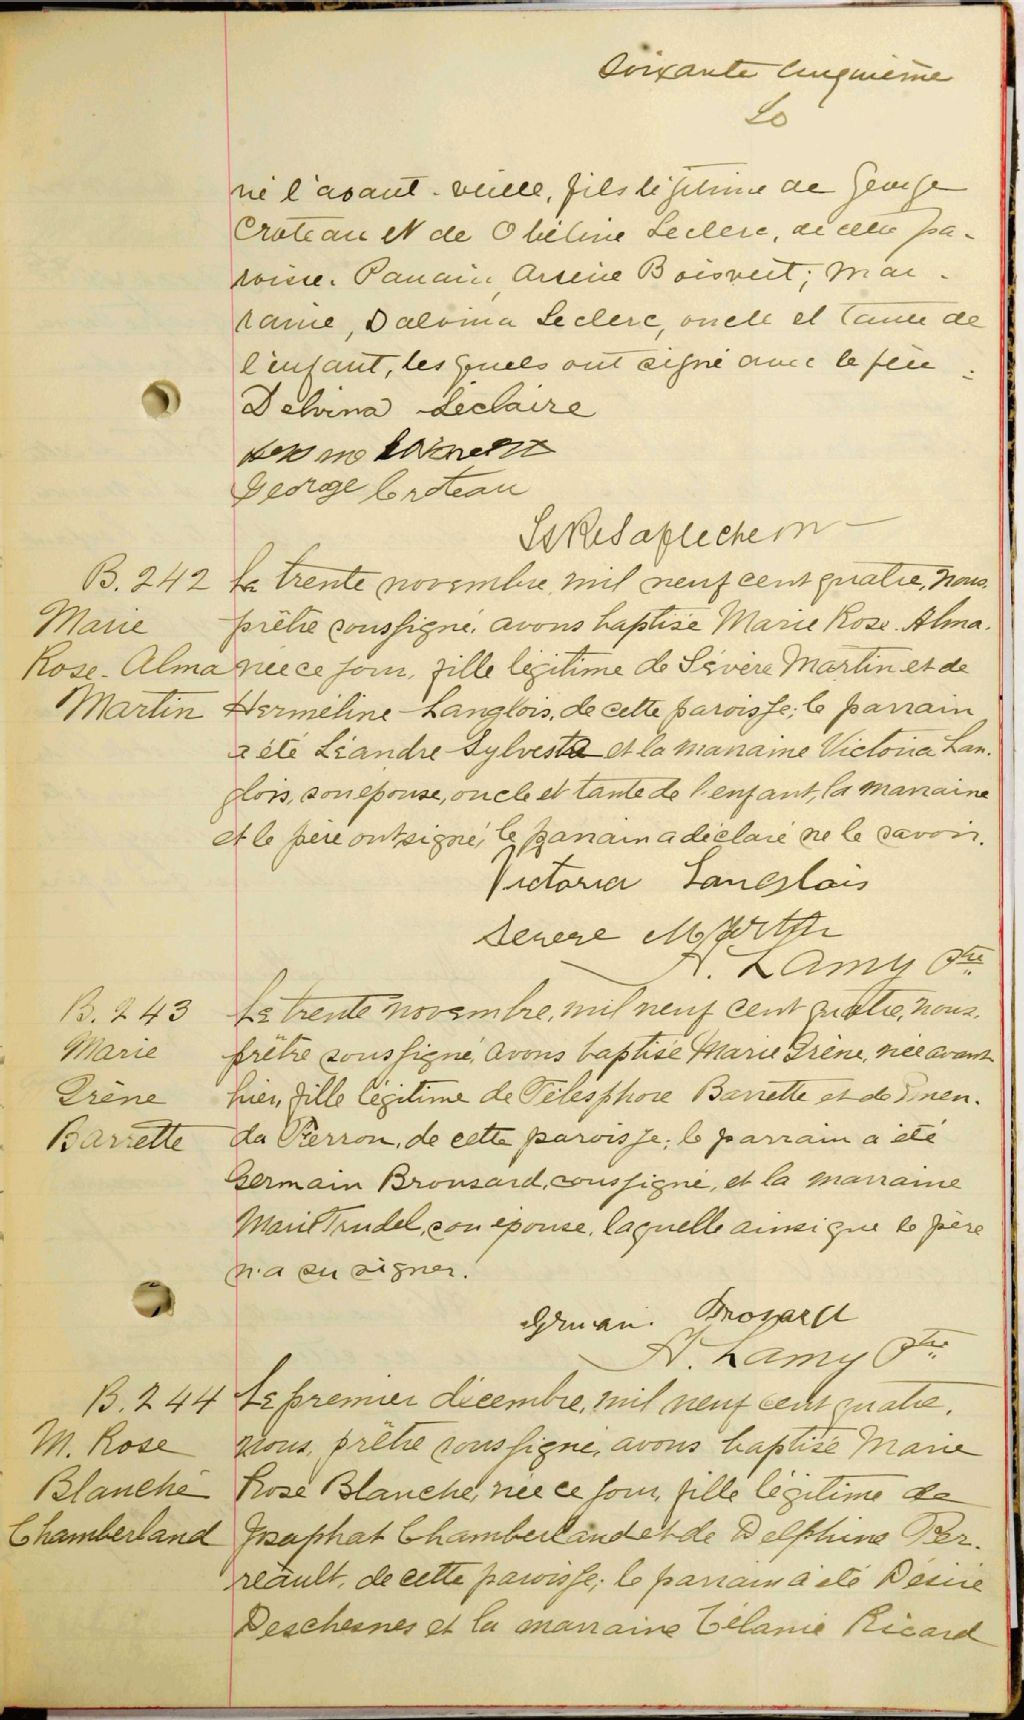 Soixante cinquième
né l'avant-veille, fils légitime de George
Croteau et de Obéline Leclerc, de cette pa-
roisse. Parrain, Arsène Boisvert; mar-
raine, Dalvina Leclerc, oncle et tante de
l'enfant, lesquels ont signé avec le père
Delvina Leclaire
George Croteau
B. 242
Marie
Rose-Alma
Martin
Le trente novembre, mil neuf cent quatre, nous,
prêtre soussigné, avons baptisé Marie Rose-Alma,
née ce jour, fille légitime de Sévère Martin et de
Herméline Langlois, de cette paroisse; le parrain
a été Léandre Sylvestre et la marraine Victoria Lan-
glois, son épouse, oncle et tante de l'enfant, la marraine
et le père ont signé, le parrain a déclaré ne le savoir.
Victoria Langlais
Severe Martin
A. Lamy Ptre
B. 243
Marie
Irène
Barrette
Le trente novembre, mil neuf cent quatre, nous,
prêtre soussigné, avons baptisé Marie Irène, née avant-
hier, fille légitime de Télesphore Barrette et de Emen-
da Ferron, de cette paroisse; le parrain a été
Germain Brousard, soussigné, et la marraine
Marie Trudel, son épouse, laquelle ainsi que le père
n'a su signer.
Brosard
A. Lamy Ptre
B. 244
M. Rose
Blanche
Chamberland
Le premier décembre, mil neuf cent quatre,
nous, prêtre soussigné, avons baptisé Marie
Rose Blanche, née ce jour, fille légitime de
Josaphat Chamberland et de Delphine Per-
reault, de cette paroisse; le parrain a été Désiré
Deschesnes et la marraine Célanie Ricard